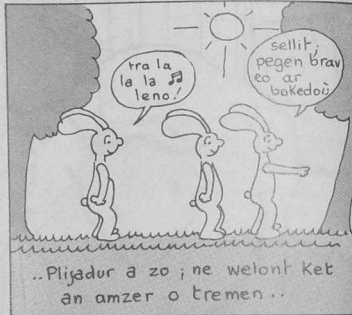 tra la
la la ♫
leno!
sellit;
pegen brav
eo ar
bokedoù
..Plijadur a zo ; ne welont ket
an amzer o tremen..